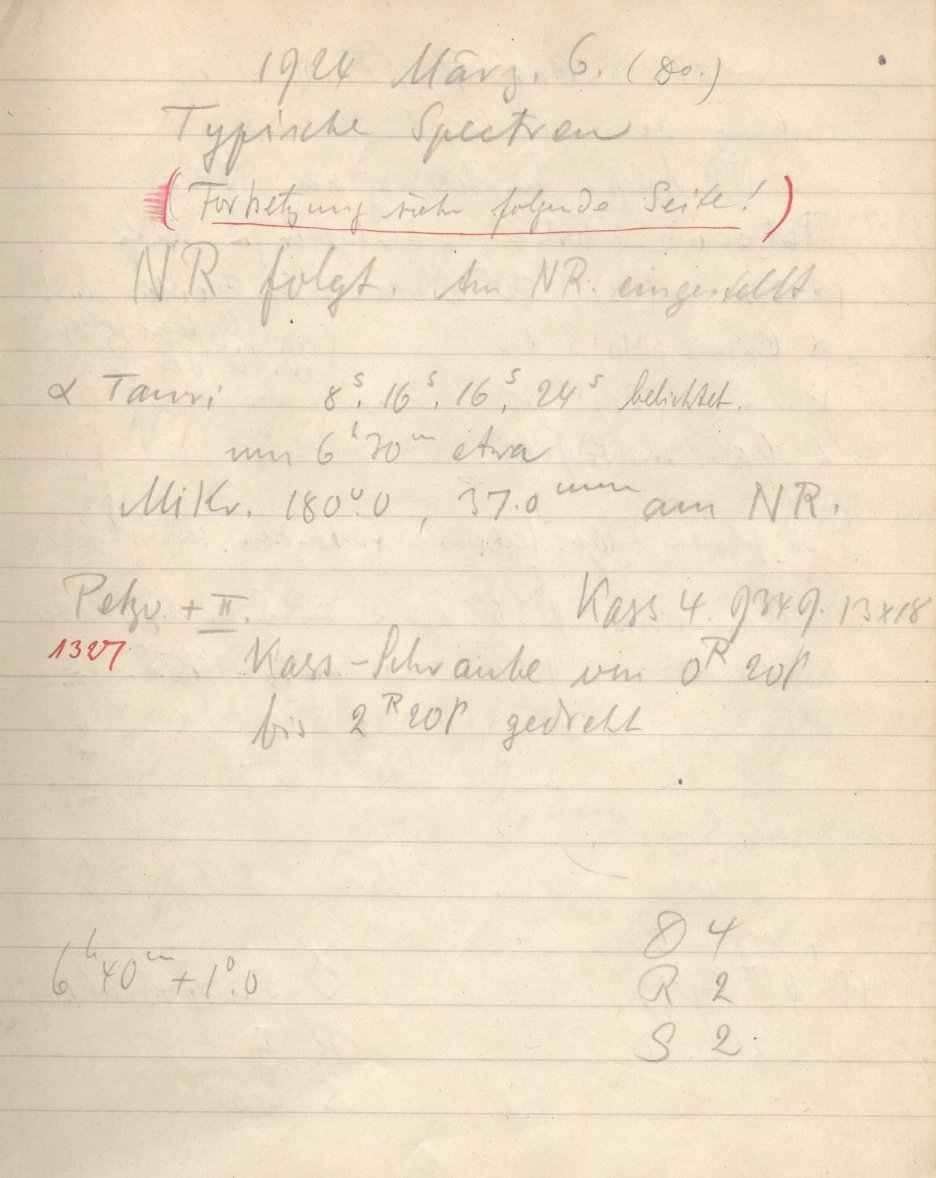 1924 März. 6. (Do.)
Typische Spectren
(Fortsetzung siehe folgende Seite!)
NR. folgt. Am NR. eingestellt.
α Tauri 8ˢ, 16ˢ, 16ˢ, 24ˢ belichtet.
um 6ʰ30ᵐ etwa
Mikr. 180°.0, 37.0ᵐᵐ am NR.
Petzv. + II. Kass 4. 9349. 13x18
1327 Kass-Schraube von 0ᴿ 20ᵖ
bis 2ᴿ 20ᵖ gedreht
D 4
6ʰ40ᵐ +1°.0 R 2
S 2